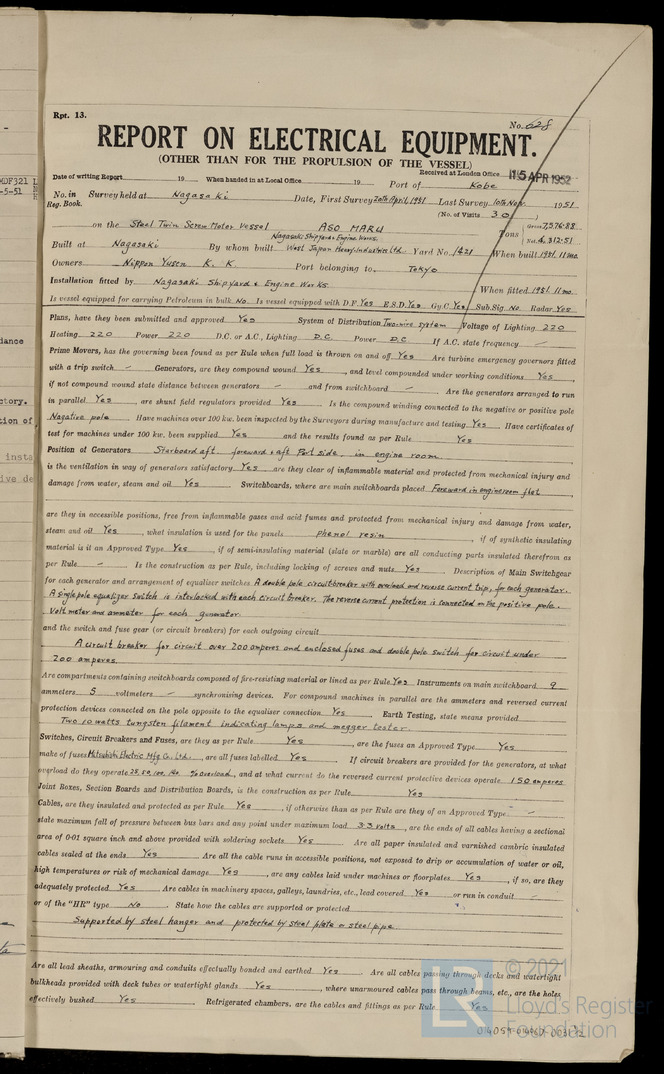 Rpt. 13.
No. 628
REPORT ON ELECTRICAL EQUIPMENT.
(OTHER THAN FOR THE PROPULSION OF THE VESSEL)
Received at London Office 15 APR 1952
Date of writing Report 19 When handed in at Local Office 19 Port of Kobe
No. in Reg. Book. Survey held at Nagasaki Date, First Survey 20th April, 1951 Last Survey 10th Nov. 1951
(No. of Visits 30)
on the Steel Twin Screw Motor Vessel ASO MARU Tons Gross 7,576.88 Net 4,312.51
Built at Nagasaki By whom built Nagasaki Shipyard & Engine Works, West Japan Heavy-Industries Ltd. Yard No. 1421 When built 1951. 11 mo.
Owners Nippon Yusen K. K Port belonging to Tokyo
Installation fitted by Nagasaki Shipyard & Engine Works When fitted 1951. 11 mo.
Is vessel equipped for carrying Petroleum in bulk No Is vessel equipped with D.F. Yes E.S.D. Yes Gy.C. Yes Sub.Sig. No Radar Yes
Plans, have they been submitted and approved Yes System of Distribution Two-wire system Voltage of Lighting 220
Heating 220 Power 220 D.C. or A.C., Lighting D.C. Power D.C If A.C. state frequency –
Prime Movers, has the governing been found as per Rule when full load is thrown on and off Yes Are turbine emergency governors fitted
with a trip switch – Generators, are they compound wound Yes, and level compounded under working conditions Yes,
if not compound wound state distance between generators – and from switchboard – Are the generators arranged to run
in parallel Yes, are shunt field regulators provided Yes Is the compound winding connected to the negative or positive pole
Nagative pole Have machines over 100 kw. been inspected by the Surveyors during manufacture and testing Yes. Have certificates of
test for machines under 100 kw. been supplied Yes and the results found as per Rule Yes
Position of Generators Starboard aft, foreward & aft Port side, in engine room
is the ventilation in way of generators satisfactory Yes are they clear of inflammable material and protected from mechanical injury and
damage from water, steam and oil Yes Switchboards, where are main switchboards placed Foreward in engineroom flat
are they in accessible positions, free from inflammable gases and acid fumes and protected from mechanical injury and damage from water,
steam and oil Yes, what insulation is used for the panels phenol resin, if of synthetic insulating
material is it an Approved Type Yes, if of semi-insulating material (slate or marble) are all conducting parts insulated therefrom as
per Rule – Is the construction as per Rule, including locking of screws and nuts Yes Description of Main Switchgear
for each generator and arrangement of equaliser switches A double pole circuit breaker with overload and reverse current trip, for each generator.
A single pole equalizer switch is interlocked with each circuit breaker. The reverse current protection is connected on the positive pole.
Volt meter and ammeter for each generator.
and the switch and fuse gear (or circuit breakers) for each outgoing circuit
A circuit breaker for circuit over 200 amperes and enclosed fuses and double pole switch for circuit under
200 amperes.
Are compartments containing switchboards composed of fire-resisting material or lined as per Rule Yes Instruments on main switchboard 9
ammeters 5 voltmeters – synchronising devices. For compound machines in parallel are the ammeters and reversed current
protection devices connected on the pole opposite to the equaliser connection Yes Earth Testing, state means provided
Two 10 watts tungsten filament indicating lamps and megger tester.
Switches, Circuit Breakers and Fuses, are they as per Rule Yes, are the fuses an Approved Type Yes
make of fuses Mitsubishi Electric Mfg Co. Ltd., are all fuses labelled Yes If circuit breakers are provided for the generators, at what
overload do they operate % overload, and at what current do the reversed current protective devices operate 150 amperes
Joint Boxes, Section Boards and Distribution Boards, is the construction as per Rule Yes
Cables, are they insulated and protected as per Rule Yes, if otherwise than as per Rule are they of an Approved Type –
state maximum fall of pressure between bus bars and any point under maximum load 3.3 volts, are the ends of all cables having a sectional
area of 0·01 square inch and above provided with soldering sockets Yes Are all paper insulated and varnished cambric insulated
cables sealed at the ends Yes Are all the cable runs in accessible positions, not exposed to drip or accumulation of water or oil,
high temperatures or risk of mechanical damage Yes, are any cables laid under machines or floorplates Yes, if so, are they
adequately protected Yes Are cables in machinery spaces, galleys, laundries, etc., lead covered Yes or run in conduit –
or of the "HR" type No State how the cables are supported or protected
Supported by steel hanger and protected by steel plate or steel pipe.
Are all lead sheaths, armouring and conduits effectually bonded and earthed Yes Are all cables passing through decks and watertight
bulkheads provided with deck tubes or watertight glands Yes, where unarmoured cables pass through beams, etc., are the holes
effectively bushed Yes Refrigerated chambers, are the cables and fittings as per Rule Yes
© 2021
Lloyd's Register
Foundation